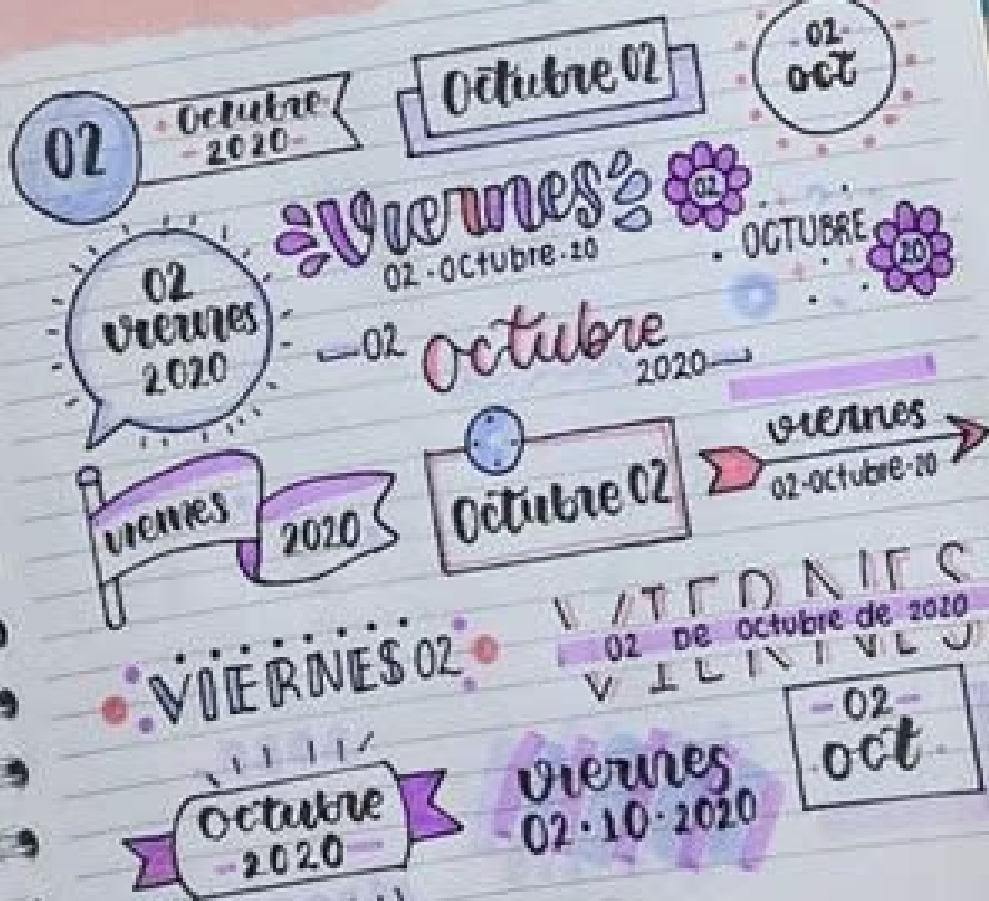 02
Octubre
-2020-
Octubre 02
-02-
oct
Viernes
02-Octubre-20
02
OCTUBRE
20
02
viernes
2020
02 Octubre
2020
viernes
02-Octubre-20
viernes
2020
Octubre 02
VIERNES
02 DE Octubre de 2020
VIERNES 02
-02-
oct
Octubre
-2020-
viernes
02·10·2020